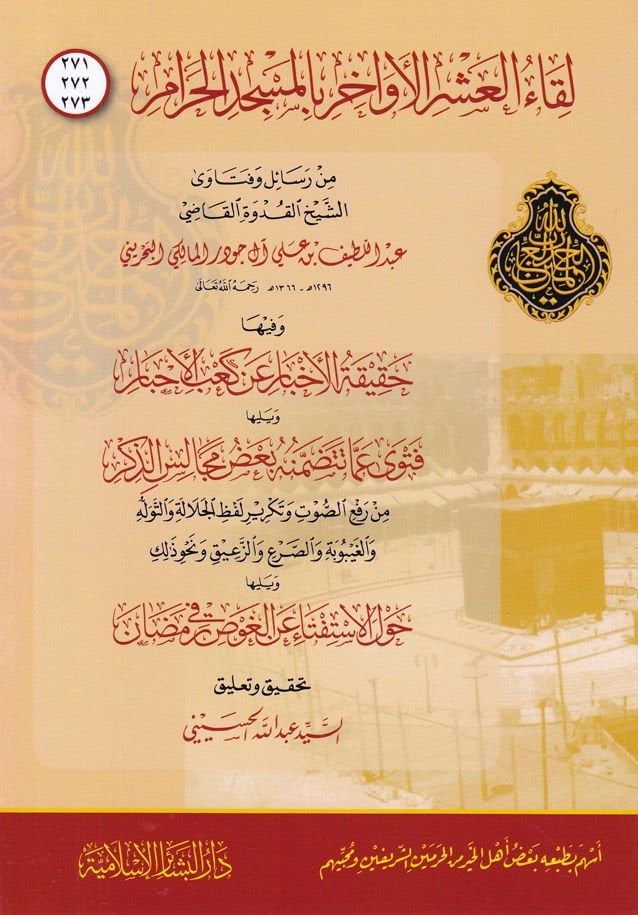 ٢٧١
٢٧٢
٢٧٣
لِقَاءُ العَشْرِ الأَوَاخِرِ بِالمَسْجِدِ الحَرَامِ
مِنْ رَسَائِلِ وَفَتَاوَى
الشَّيْخِ القُدْوَةِ القَاضِي
عبد اللطيف بن علي آل جودر المالكي البحريني
١٢٩٦هـ - ١٣٦٦هـ رَحِمَهُ اللهُ تَعَالَى
وَفِيهَا
حَقِيقَةُ الأَخْبَارِ عَنْ كَعْبِ الأَحْبَارِ
وَيَلِيهَا
فَتْوَى عَمَّا تَتَضَمَّنُهُ بَعْضُ مَجَالِسِ الذِّكْرِ
مِنْ رَفْعِ الصَّوْتِ وَتَكْرِيرِ لَفْظِ الجَلَالَةِ وَالتَّوَلُّهِ
وَالغَيْبُوبَةِ وَالصَّرَعِ وَالزَّعِيقِ وَنَحْوِ ذَلِكَ
وَيَلِيهَا
حَوْلَ الاسْتِفْتَاءِ عَنِ الغَوْصِ فِي رَمَضَانَ
تحقيق وتعليق
السَّيِّد عبد الله الحسيني
أَسْهَمَ بِطَبْعِهِ بَعْضُ أَهْلِ الخَيْرِ مِنَ الحَرَمَيْنِ الشَّرِيفَيْنِ وَمُحِبِّيهِم
دَارُ البَشَائِرِ الإِسْلَامِيَّة